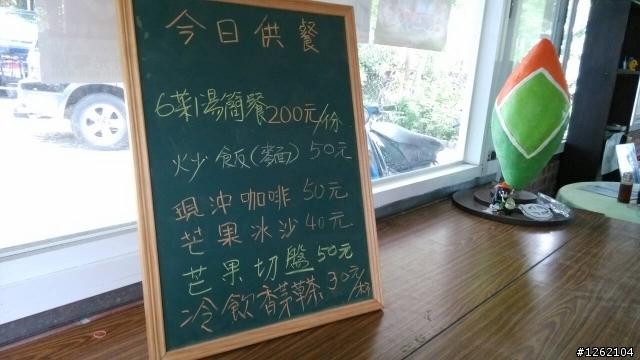 今日供餐
6菜1湯簡餐200元/份
炒飯(麵) 50元
現沖咖啡 50元
芒果冰沙 40元
芒果切盤 50元
冷飲香草茶 30元/杯
#1262104